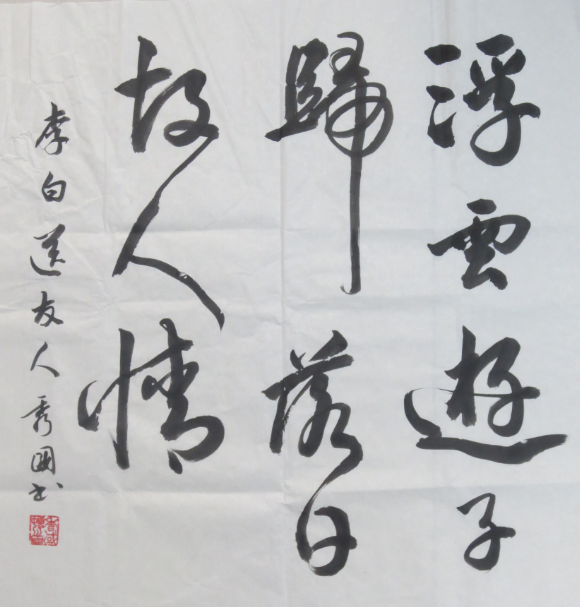 浮雲遊子
歸落日
故人情
李白送友人秀國书